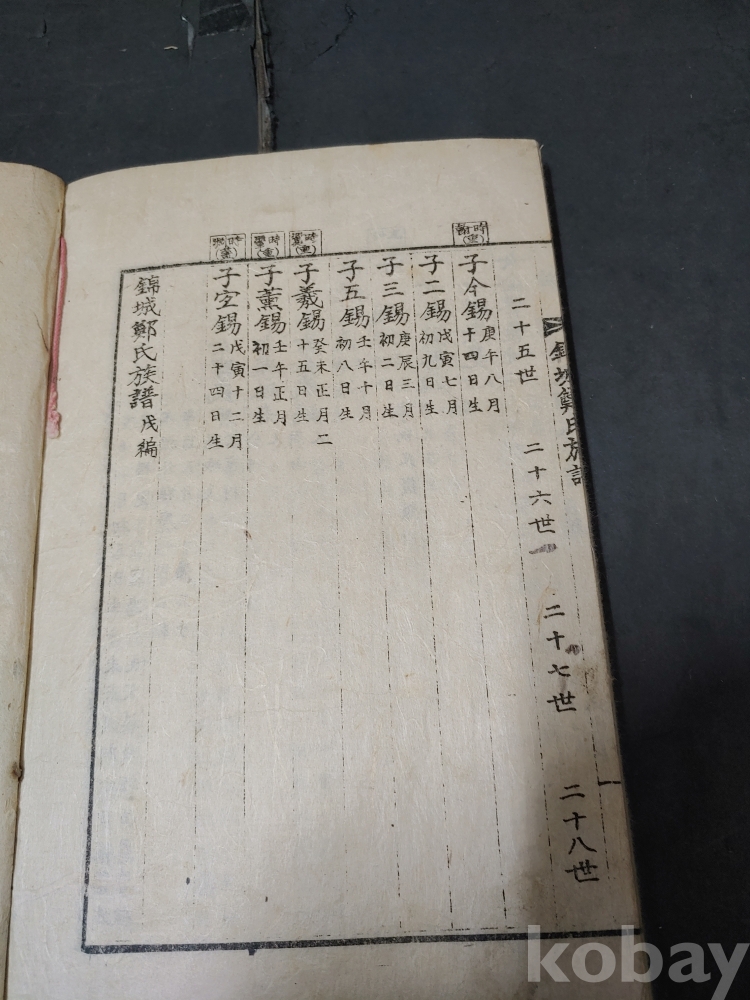 錦城鄭氏族譜
二十五世
二十六世
二十七世
二十八世
時
子今錫 庚午八月
十四日生
子二錫 戊寅七月
初九日生
子三錫 庚辰三月
初二日生
子五錫 壬午十月
初八日生
時
子羲錫 癸未正月二
十五日生
時
子薰錫 壬午正月
初一日生
時
子空錫 戊寅十二月
二十四日生
錦城鄭氏族譜 戊編
kobay